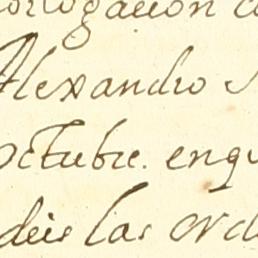 orrogacion co
Alexandro S
octubre. enqu
deis las orde